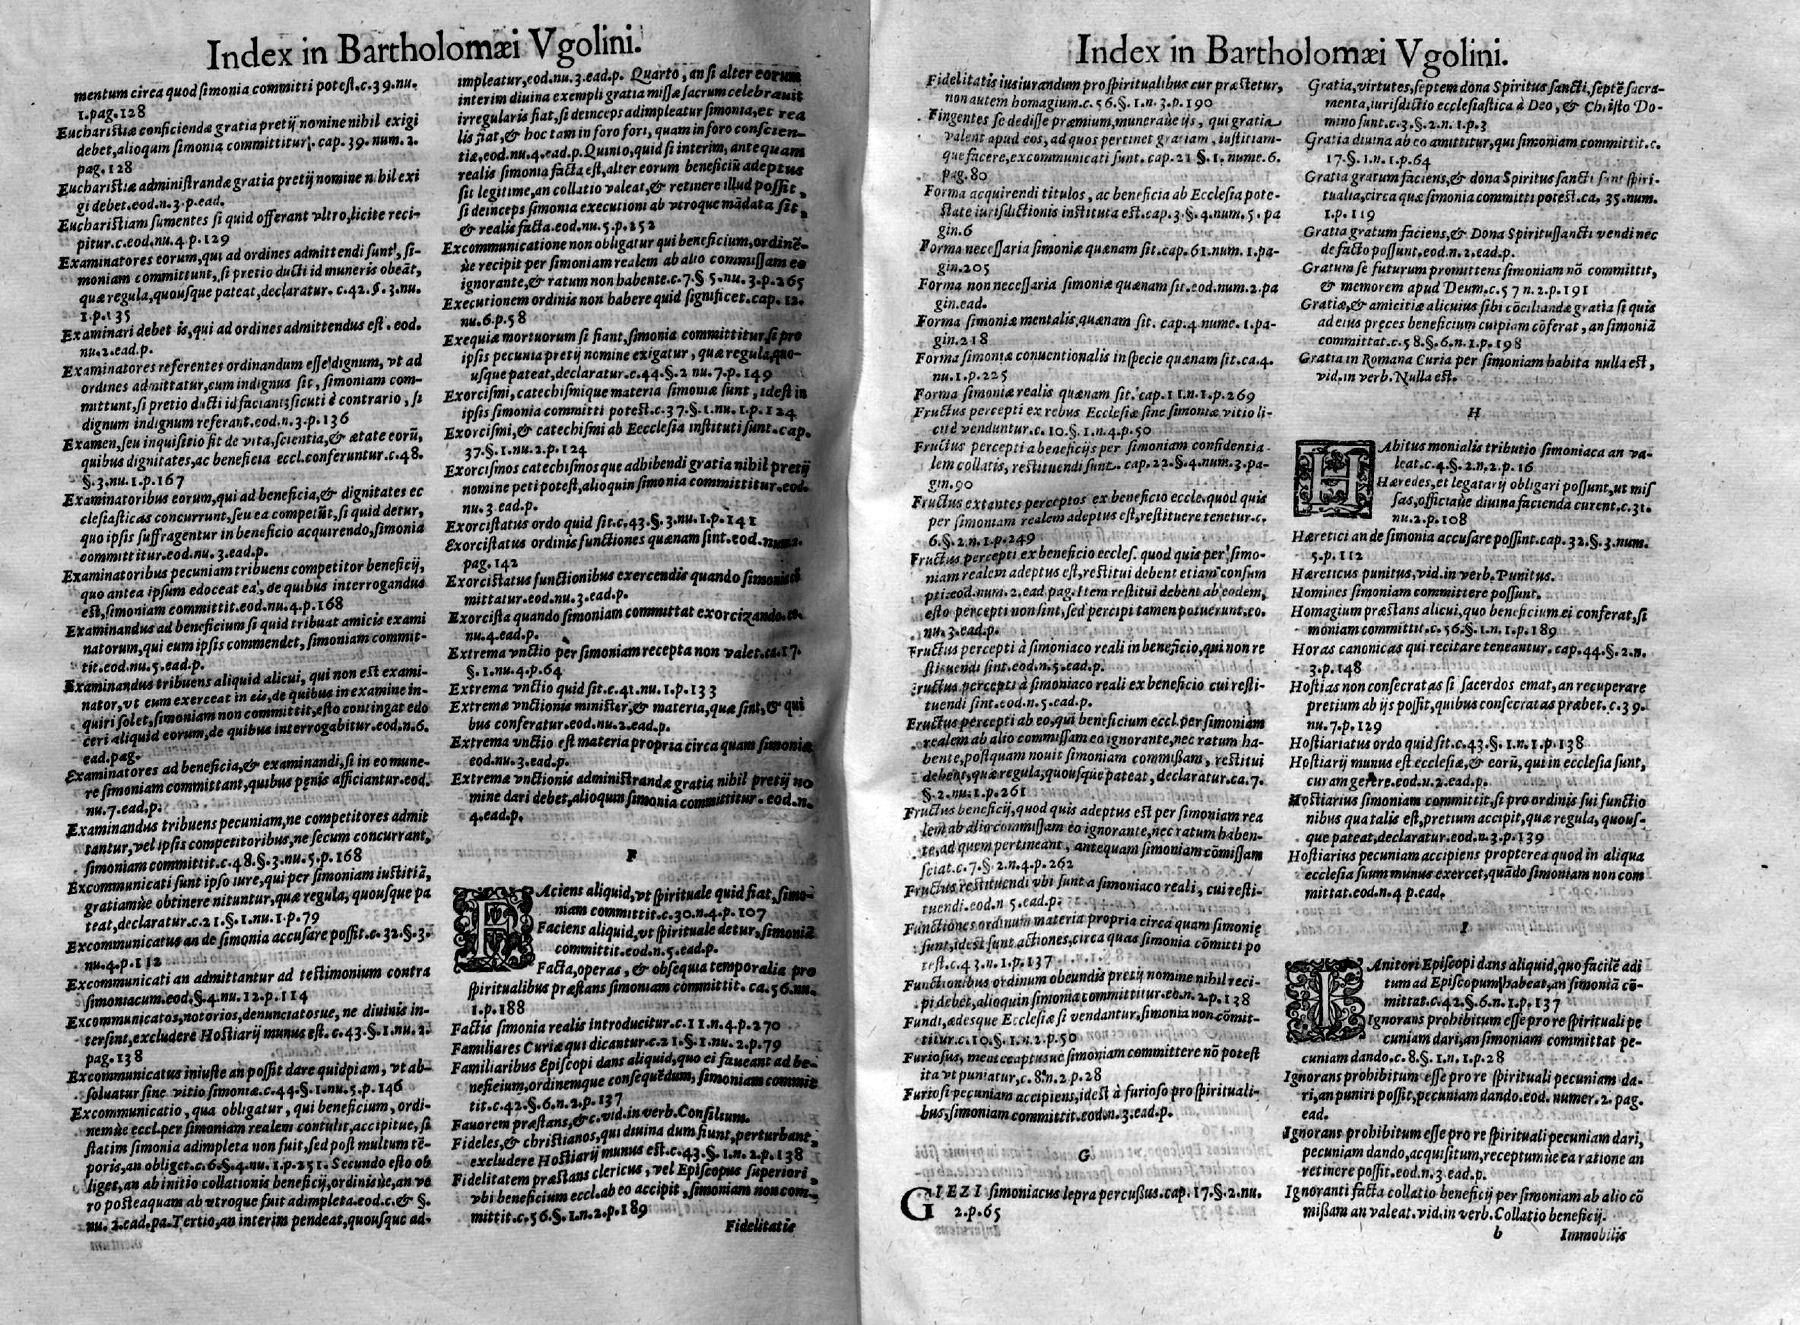 Index in Bartholomæi Vgolini.
mentum circa quod simonia committi potest.c.39.nu.
1.pag.128
Eucharistiæ conficiendæ gratia pretij nomine nihil exigi
debet, alioquin simonia committitur. cap. 39. num. 2.
pag. 128
Eucharistiæ administrandæ gratia pretij nomine nihil exi
gi debet.eod.n.3.p.ead.
Eucharistiam sumentes si quid offerant vltro, licite reci-
pitur.c.eod.nu.4.p.129
Examinatores eorum, qui ad ordines admittendi sunt, si-
moniam committunt, si pretio ducti id muneris obeāt,
quæ regula, quousque pateat, declaratur. c.42.§.3.nu.
1.p.135
Examinari debet is, qui ad ordines admittendus est. eod.
nu.2.ead.p.
Examinatores referentes ordinandum esse dignum, vt ad
ordines admittatur, cum indignus sit, simoniam com-
mittunt, si pretio ducti id faciant; sicuti è contrario, si
dignum indignum referant.eod.n.3.p.136
Examen, seu inquisitio fit de vita, scientia, & ætate eorū,
quibus dignitates, ac beneficia eccl.conferuntur.c.48.
§.3.nu.1.p.167
Examinatoribus eorum, qui ad beneficia, & dignitates ec
clesiasticas concurrunt, seu ea competūt, si quid detur,
quo ipsis suffragentur in beneficio acquirendo, simonia
committitur.eod.nu.3.ead.p.
Examinatoribus pecuniam tribuens competitor beneficij,
quo antea ipsum edoceat ea, de quibus interrogandus
est, simoniam committit.eod.nu.4.p.168
Examinandus ad beneficium si quid tribuat amicis exami
natorum, qui eum ipsis commendet, simoniam commit-
tit.eod.nu.5.ead.p.
Examinandus tribuens aliquid alicui, qui non est exami-
nator, vt eum exerceat in eis, de quibus in examine in-
quiri solet, simoniam non committit, esto contingat edo
ceri aliquid eorum, de quibus interrogabitur.eod.n.6.
ead.pag.
Examinatores ad beneficia, & examinandi, si in eo mune-
re simoniam committant, quibus pęnis afficiantur.eod.
nu.7.ead.p.
Examinandus tribuens pecuniam, ne competitores admit
tantur, vel ipsis competitoribus, ne secum concurrant,
simoniam committit.c.48.§.3.nu.5.p.168
Excommunicati sunt ipso iure, qui per simoniam iustitiā,
gratiamùe obtinere nituntur, quæ regula, quousque pa
teat, declaratur.c.21.§.1.nu.1.p.79
Excommunicatus an de simonia accusare possit.c.32.§.3.
nu.4.p.112
Excommunicati an admittantur ad testimonium contra
simoniacum.eod.§.4.nu.12.p.114
Excommunicatos, notorios, denunciatosue, ne diuinis in-
tersint, excludere Hostiarij munus est. c.43.§.1.nu.2.
pag.138
Excommunicatus iniuste an possit dare quidpiam, vt ab-
soluatur sine vitio simonia.c.44.§.1.nu.5.p.146
Excommunicatio, qua obligatur, qui beneficium, ordi-
nemùe eccl.per simoniam realem contulit, accipitue, si
statim simonia adimpleta non fuit, sed post multum tē-
poris, an obliget.c.6.§.4.nu.1.p.251. Secundo esto ob
liget, an ab initio collationis beneficij, ordinisùe, an ve
ro posteaquam ab vtroque fuit adimpleta.eod.c.& §.
nu. 2.ead.pa.Tertio, an interim pendeat, quousque ad-
impleatur, eod.nu.3.ead.p. Quarto, an si alter eorum
interim diuina exempli gratia missæ sacrum celebrauit
irregularis fiat, si deinceps adimpleatur simonia, et rea
lis fiat, & hoc tam in foro fori, quam in foro conscien-
tiæ,eod.nu.4.ead.p. Quinto, quid si interim, antequam
realis simonia facta est, alter eorum beneficiū adeptus
sit legitime, an collatio valeat, & retinere illud possit,
si deinceps simonia executioni ab vtroque mādata sit,
& realis facta.eod.nu.5.p.252
Excommunicatione non obligatur qui beneficium, ordinē-
ùe recipit per simoniam realem ab alio commissam eo
ignorante, & ratum non habente.c.7.§ 5.nu.3.p.265
Executionem ordinis non habere quid significet.cap. 12.
nu.6.p.58
Exequiæ mortuorum si fiant, simonia committitur, si pro
ipsis pecunia pretij nomine exigatur, quæ regula, quo-
usque pateat, declaratur.c.44.§.2 nu.7.p.149
Exorcismi, catechismique materia simoniæ sunt, idest in
ipsis simonia committi potest.c.37.§.1.nu.1.p.124
Exorcismi, & catechismi ab Eecclesia instituti sunt.cap.
37.§.1.nu.2.p.124
Exorcismos catechismosque adhibendi gratia nihil pretij
nomine peti potest, alioquin simonia committitur.eod.
nu.3.ead.p.
Exorcistatus ordo quid sit.c.43.§.3.nu.1.p.141
Exorcistatus ordinis functiones quænam sint.eod.num2.
pag.142
Exorcistatus functionibus exercendis quando simonia cō
mittatur.eod.nu.3.ead.p.
Exorcista quando simoniam committat exorcizando.eo.
nu.4.ead.p.
Extrema vnctio pèr simoniam recepta non valet.ca.17.
§.1.nu.4.p.64
Extrema vnctio quid sit.c.41.nu.1.p.133
Extrema vnctionis minister, & materia, quæ sint, & qui
bus conferatur.eod.nu.2.ead.p.
Extrema vnctio est materia propria circa quam simonia,
eod.nu.3.ead.p.
Extrema vnctionis administrandæ gratia nihil pretij no
mine dari debet, alioquin simonia committitur. eod.n.
4.ead.p.
F
FAciens aliquid, vt spirituale quid fiat, simo-
niam committit.c.30.n.4.p.107
Faciens aliquid, vt spirituale detur, simoniā
committit.eod.n.5.ead.p.
Facta, operas, & obsequia temporalia pro
spiritualibus præstans simoniam committit. ca.56.nu.
1.p.188
Factis simonia realis introducitur.c.11.n.4.p.270
Familiares Curiæ qui dicantur.c.21.§.1.nu.2.p.79
Familiaribus Episcopi dans aliquid, quo ei faueant ad be-
neficium, ordinemque consequēdum, simoniam commit
tit.c.42.§.6.n.2.p.137
Fauorem præstans, &c.vid.in verb.Consilium.
Fideles, & christianos, qui diuina dum fiunt, perturbant,
excludere Hostiarij munus est.c.43.§.1.n.2.p.138
Fidelitatem præstans clericus, vel Episcopus superiori,
vbi beneficium eccl.ab eo accipit, simoniam non com-
mittit.c.56.§.1.n.2.p.189
Fidelitatis
Index in Bartholomæi Vgolini.
Fidelitatis iusiurandum pro spiritualibus cur præstetur,
non autem homagium.c.56.§.1.n.3.p.190
Fingentes se dedisse præmium, muneraùe ijs, qui gratia
valent apud eos, ad quos pertinet gratiam, iustitiam-
que facere, excommunicati sunt. cap.21 §.1.nume.6.
pag.80
Forma acquirendi titulos, ac beneficia ab Ecclesia pote-
state iurisdictionis instituta est.cap.3.§.4.num.5.pa
gin.6
Forma necessaria simoniæ quænam sit.cap.61.num.1.pa-
gin.205
Forma non necessaria simoniæ quænam sit.eod.num.2.pa
gin.ead.
Forma simoniæ mentalis, quænam sit. cap.4.nume.1.pa-
gin.218
Forma simoniæ conuentionalis in specie quænam sit.ca.4.
nu.1.p.225
Forma simoniæ realis quænam sit. cap.11.n.1.p.269
Fructus percepti ex rebus Ecclesiæ sine simoniæ vitio li-
citè venduntur.c.10.§.1.n.4.p.50
Fructus percepti a beneficijs per simoniam confidentia-
lem collatis, restituendi sunt. cap.22.§.4.num.3.pa-
gin.90
Fructus extantes perceptos ex beneficio eccle.quod quis
per simoniam realem adeptus est, restituere tenetur.c.
6.§.2.n.1.p.249
Fructus percepti ex beneficio eccles. quod quis per simo-
niam realem adeptus est, restitui debent etiam consum
pti.eod.num.2.ead pag.Item restitui debent ab eodem,
esto percepti non sint, sed percipi tamen potuerunt.eo.
nu.3.ead.p.
Fructus percepti à simoniaco reali in beneficio, qui non re
stituendi sint.eod.n.5.ead.p.
Fructus percepti à simoniaco reali ex beneficio cui resti-
tuendi sint.eod.n.5.ead.p.
Fructus percepti ab eo, qui beneficium eccl.per simoniam
realem ab alio commissam eo ignorante, nec ratum ha-
bente, postquam nouit simoniam commissam, restitui
debent, quæ regula, quousque pateat, declaratur.ca.7.
§.2.nu.1.p.261
Fructus beneficij, quod quis adeptus est per simoniam rea
lem ab alio commissam eo ignorante, nec ratum haben-
te, ad quem pertineant, antequam simoniam cōmissam
sciat.c.7.§.2.n.4.p.262
Fructus restituendi vbi sunt a simoniaco reali, cui resti-
tuendi.eod.n 5.ead.p.
Functiones ordinum materia propria circa quam simonię
sunt, idest sunt actiones, circa quas simonia cōmitti po
test.c.43.n.1.p.137
Functionibus ordinum obeundis pretij nomine nihil reci-
pi debet, alioquin simonia committitur.eo.n.2.p.138
Fundi, ædesque Ecclesiæ si vendantur, simonia non cōmit-
titur.c.10.§.1.n.2.p.50
Furiosus, mente captusùe simoniam committere nō potest
ita vt puniatur, c.8.n.2.p.28
Furiosi pecuniam accipiens, idest à furioso pro spirituali-
bus, simoniam committit.eod.n.3.ead.p.
G
GIEZI simoniacus lepra percussus.cap.17.§.2.nu.
2.p.65
Gratia, virtutes, septem dona Spiritus sancti, septē sacra-
menta, iurisdictio ecclesiastica à Deo, & Christo Do-
mino sunt.c.3.§.2.n.1.p.3
Gratia diuina ab eo amittitur, qui simoniam committit.c.
17.§.1.n.1.p.64
Gratia gratum faciens, & dona Spiritus sancti sunt spiri-
tualia, circa quæ simonia committi potest.ca. 35.num.
1.p.119
Gratia gratum faciens, & Dona Spiritussancti vendi nec
de facto possunt.eod.n.2.ead.p.
Gratum se futurum promittens simoniam nō committit,
& memorem apud Deum.c.57 n.2.p.191
Gratiæ, & amicitiæ alicuius sibi cōciliandæ gratia si quis
ad eius preces beneficium cuipiam cōferat, an simoniā
committat.c.58.§.6.n.1.p.198
Gratia in Romana Curia per simoniam habita nulla est,
vid.in verb.Nulla est.
H
HAbitus monialis tributio simoniaca an va-
leat.c.4.§.2.n.2.p.16
Hæredes, et legatarij obligari possunt, ut mis
sas, officiaùe diuina facienda curent.c.31.
nu.2.p.108
Hæretici an de simonia accusare possint.cap.32.§.3.num.
5.p.112
Hæreticus punitus, vid.in verb.Punitus.
Homines simoniam committere possunt.
Homagium præstans alicui, quo beneficium ei conferat, si
moniam committit.c.56.§.1.n.1.p.189
Horas canonicas qui recitare teneantur. cap.44.§.2.n.
3.p.148
Hostias non consecratas si sacerdos emat, an recuperare
pretium ab ijs possit, quibus consecratas præbet.c.39.
nu.7.p.129
Hostiariatus ordo quid sit.c.43.§.1.n.1.p.138
Hostiarij munus est ecclesiæ, & eorū, qui in ecclesia sunt,
curam gerere.eod.n.2.ead.p.
Hostiarius simoniam committit, si pro ordinis sui functio
nibus qua talis est, pretium accipit, quæ regula, quous-
que pateat, declaratur.eod.n.3.p.139
Hostiarius pecuniam accipiens propterea quod in aliqua
ecclesia suum munus exercet, quādo simoniam non com
mittat.eod.n.4 p.ead.
I
IAnitori Episcopi dans aliquid, quo facilè adi
tum ad Episcopum habeat, an simoniā cō-
mittat.c.42.§.6.n.1.p.137
Ignorans prohibitum esse pro re spirituali pe
cuniam dari, an simoniam committat pe-
cuniam dando.c.8.§.1.n.1.p.28
Ignorans prohibitum esse pro re spirituali pecuniam da-
ri, an puniri possit, pecuniam dando.eod. numer.2. pag.
ead.
Ignorans prohibitum esse pro re spirituali pecuniam dari,
pecuniam dando, acquisitum, receptumùe ea ratione an
retinere possit.eod.n.3.ead.p.
Ignoranti facta collatio beneficij per simoniam ab alio cō
missam an valeat.vid.in verb.Collatio beneficij.
b
Immobilis